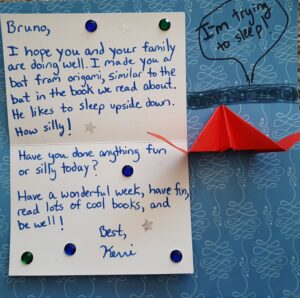 Bruno,
I hope you and your family
are doing well. I made you a
bat from origami, similar to the
bat in the book we read about.
He likes to sleep upside down.
How silly!
Have you done anything fun
or silly today?
Have a wonderful week, have fun,
read lots of cool books, and
be well!
Best,
Kerri
I'm trying
to sleep!